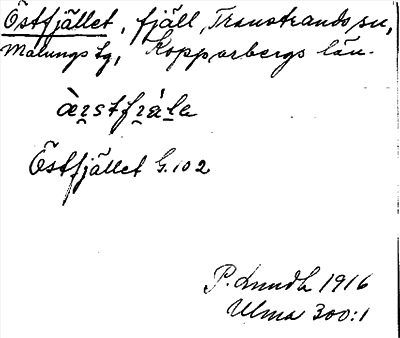 Östfjället, fjäll, Transtrands sn,
Malungs tg, Kopparbergs län.
Östfjället G.102
P. Lundh 1916
Ulma 300:1